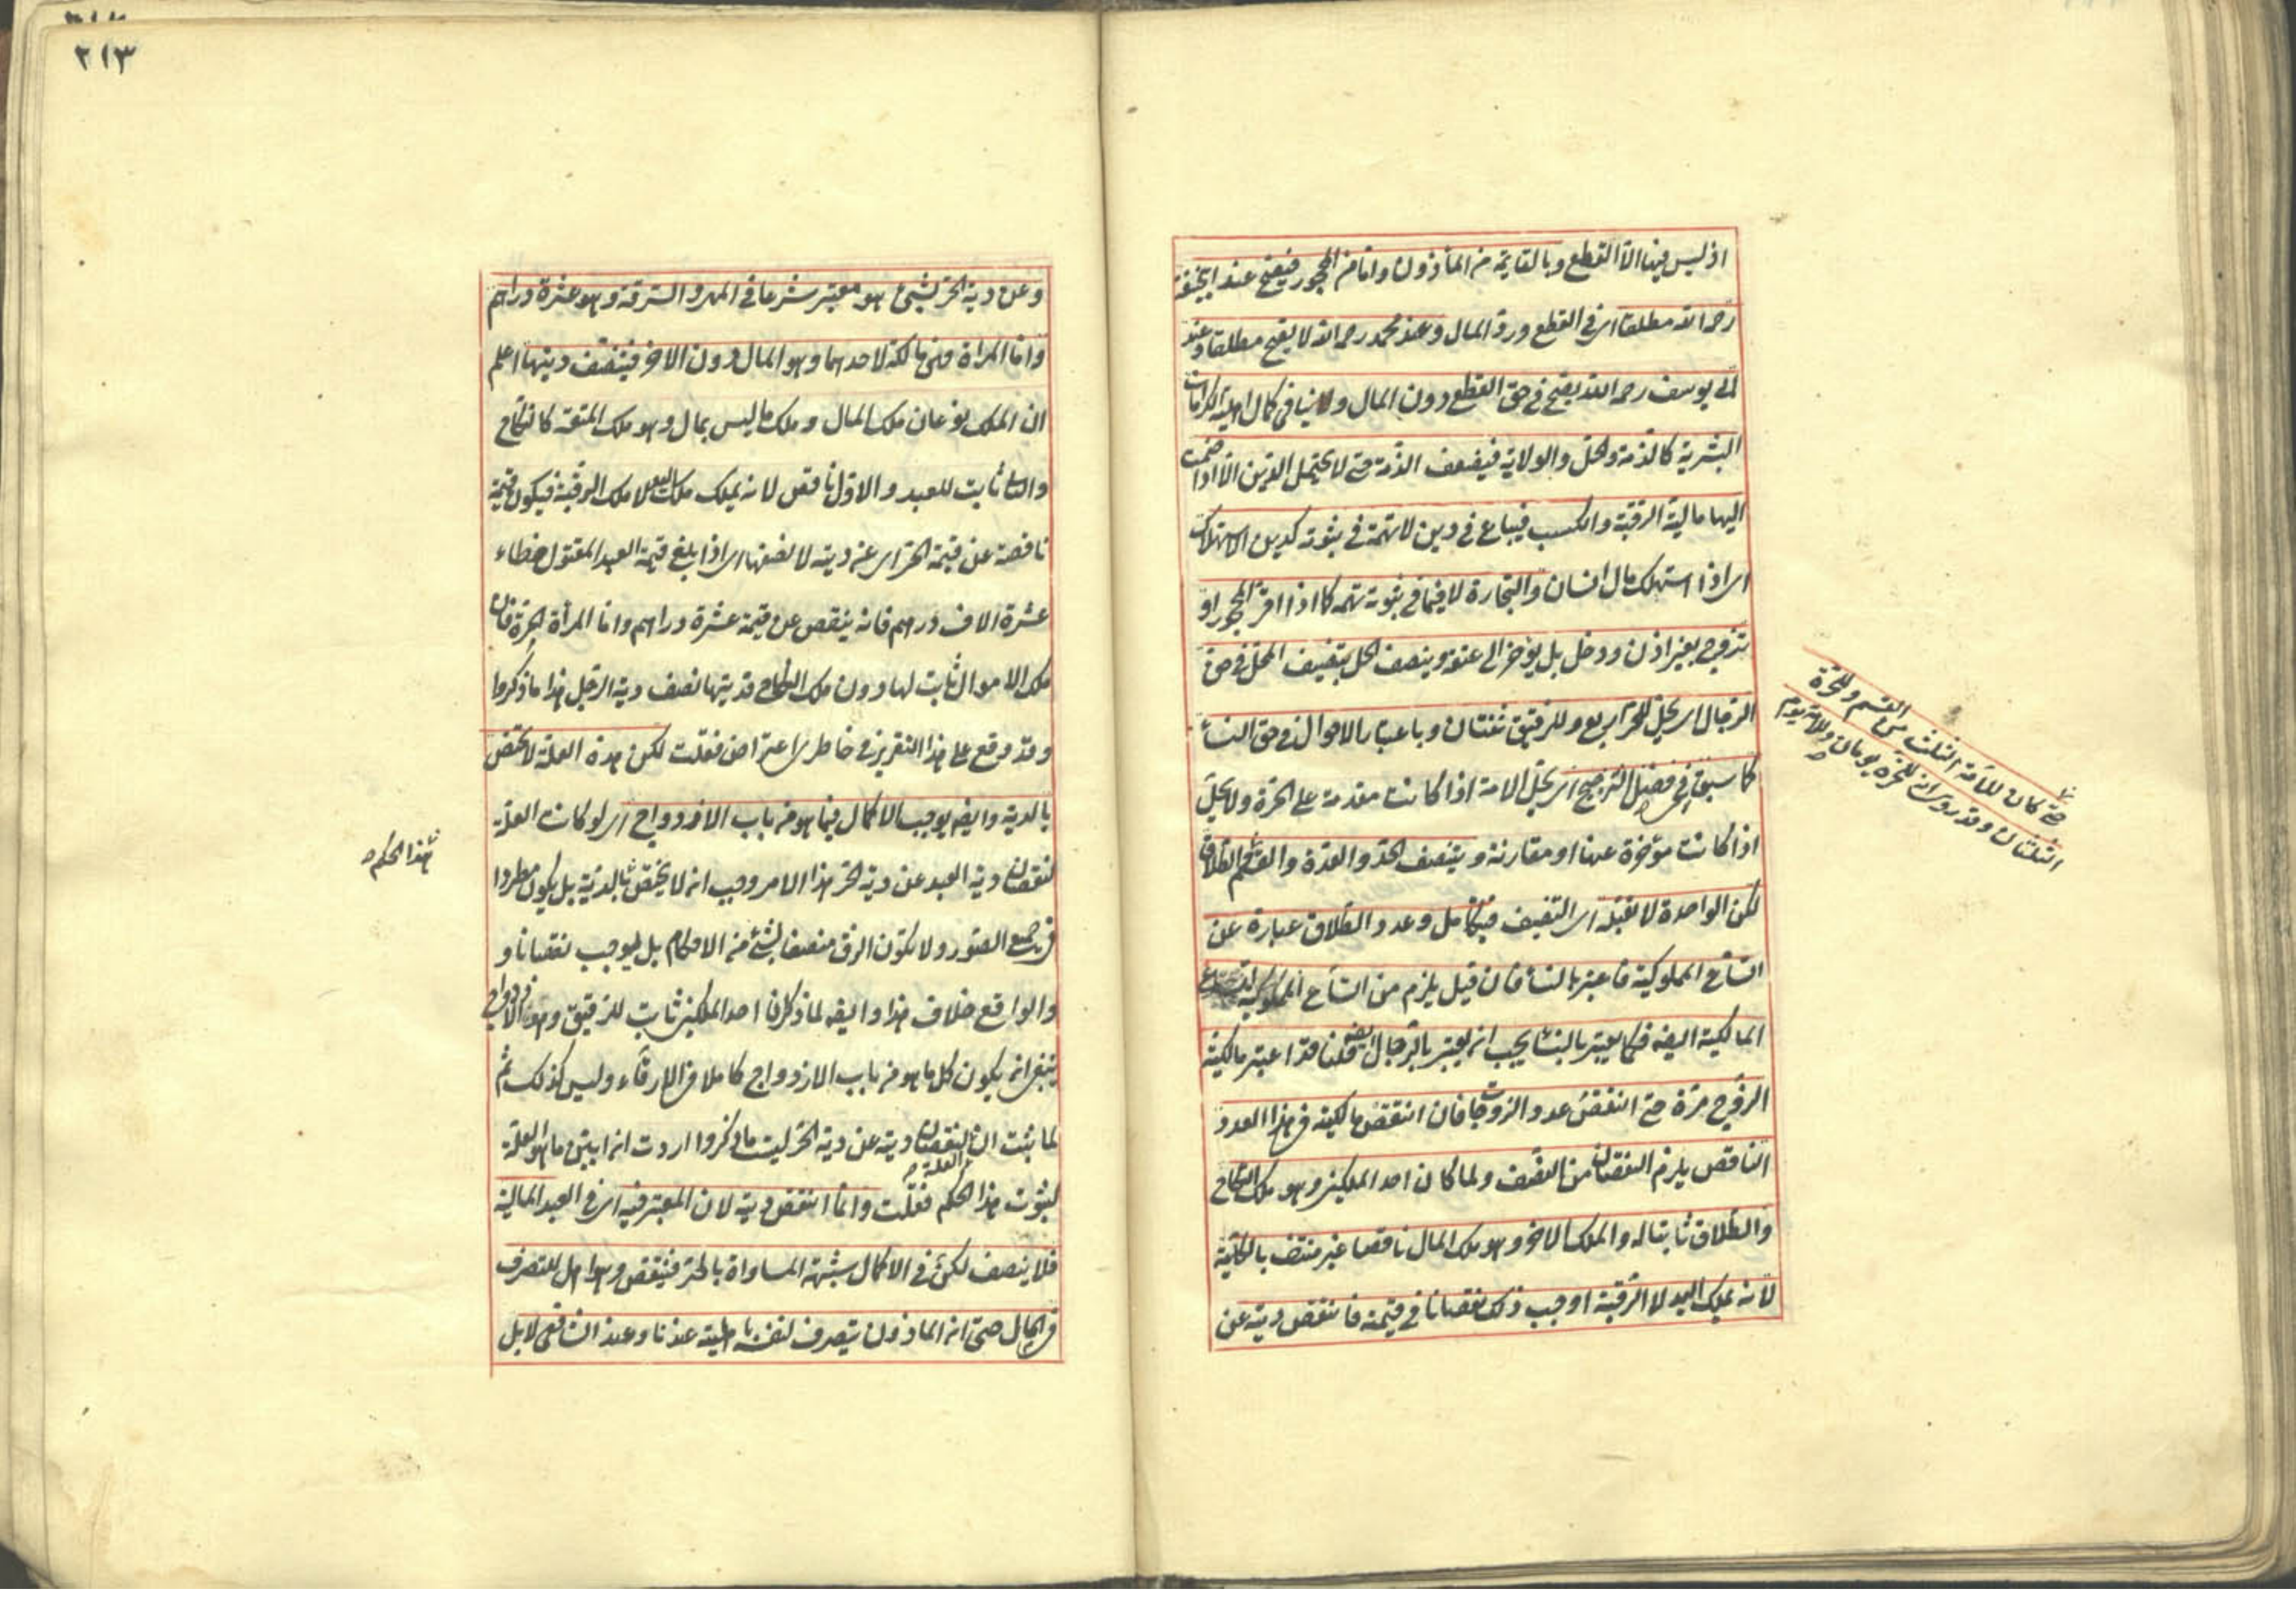 اذ ليس فيها الا القطع وبالقايمة من المأذون واما من المحجور فيصح عند ابى حنيفة
رحمه الله مطلقا اى فى القطع ورد المال وعند محمد رحمه الله لا يصح مطلقا وعند
ابى يوسف رحمه الله يصح فى حق القطع دون المال ولا ينافى كمال اهلية الكرامات
البشرية كالذمة والحل والولاية فيضعف الذمة حتى لا يحتمل الدين الا اذا ضمت
اليها مالية الرقبة والكسب فيباع فى دين لا تهمة فى ثبوته كدين الاستهلاك
اى اذا استهلك مال انسان والتجارة لا فيما فى ثبوته تهمة كما اذا اقر المحجور او
تزوج بغير اذن ودخل بل يؤخر الى عتقه وينصف الحل بتنصيف المحل فى حق
الرجال اى يحل للحر اربع وللرقيق ثنتان وباعتبار الاحوال فى حق النساء
كما سبق فى فصل الترجيح اى يحل الامة اذا كانت مقدمة على الحرة ولا يحل
اذا كانت مؤخرة عنها او مقارنة وينصف الحد والعدة والقسم والطلاق
لكن الواحدة لا تقبله اى التنصيف فيتكامل وعدد الطلاق عبارة عن
اتساع المملوكية فاعتبر بالنساء فان قيل يلزم من اتساع المملوكية اتساع
المالكية ايضا فكما يعتبر بالنساء يجب ان يعتبر بالرجال ايضا قلنا قد اعتبر مالكية
الزوج مرة حتى انتقض عدد الزوجات فان انتقض مالكيته فى هذا العدد
الناقص يلزم النقصان من النصف ولما كان احد الملكين وهو ملك النكاح
والطلاق ثابتا له والملك الاخر وهو ملك المال ناقصا غير منتف بالكلية
لانه يملك اليد لا الرقبة اوجب ذلك نقصانا فى قيمته فانتقص ديته عن
حتى كان للامة الثلث من القسم وللحرة
الثلثان وقد روى ان للحرة يومان وللامة يوم
٢١٣
وعن دية الحر بشئ هو معتبر شرعا فى المهر والسرقة وهو عشرة دراهم
واما المرأة فهى مالكة لاحدهما وهو المال دون الاخر فينصف ديتها اعلم
ان الملك نوعان ملك المال وملك ما ليس بمال وهو ملك المتعة كالنكاح
والثانى ثابت للعبد والاول ناقص لانه يملك ملك اليد لا ملك الرقبة فيكون قيمته
ناقصة عن قيمة الحر اى عن ديته لا نصفها اى اذا بلغ قيمة العبد المقتول خطاء
عشرة الاف درهم فانه ينقص عن قيمته عشرة دراهم واما المرأة الحرة فان
ملك الاموال ثابت لها دون ملك النكاح فديتها نصف دية الرجل هذا ما ذكروا
وقد وقع على هذا التقرير فى خاطرى اعتراض فقلت لكن هذه العلة لا تختص
بالدية وايضا يوجب الاكمال فيما هو من باب الازدواج اى لو كانت العلة
لنقصان دية العبد عن دية الحر هذا الامر وجب انه لا يختص بالدية بل يكون مطردا
فى جميع الصور ولا يكون الرق منصفا لشئ من الاحكام بل يوجب نقصانا و
والواقع خلاف هذا وايضا لما ذكر ان احد الملكين ثابت للرقيق وهو الازدواج
ينبغى ان يكون كل ما هو من باب الازدواج كاملا فى الارقاء وليس كذلك ثم
لما ثبت ان العلة لنقصان ديته عن دية الحر ليست ما ذكروا اردت ان ابين ما هو العلة
لثبوت هذا الحكم فقلت وانما انتقض ديته لان المعتبر فيه اى فى العبد المالية
فلا ينصف لكن فى الاكمال شبهة المساواة بالحر فينقص وهو اهل للتصرف
فى المال حتى ان المأذون يتصرف لنفسه باهليته عندنا وعند الشافعى لا بل
هذا الحكم